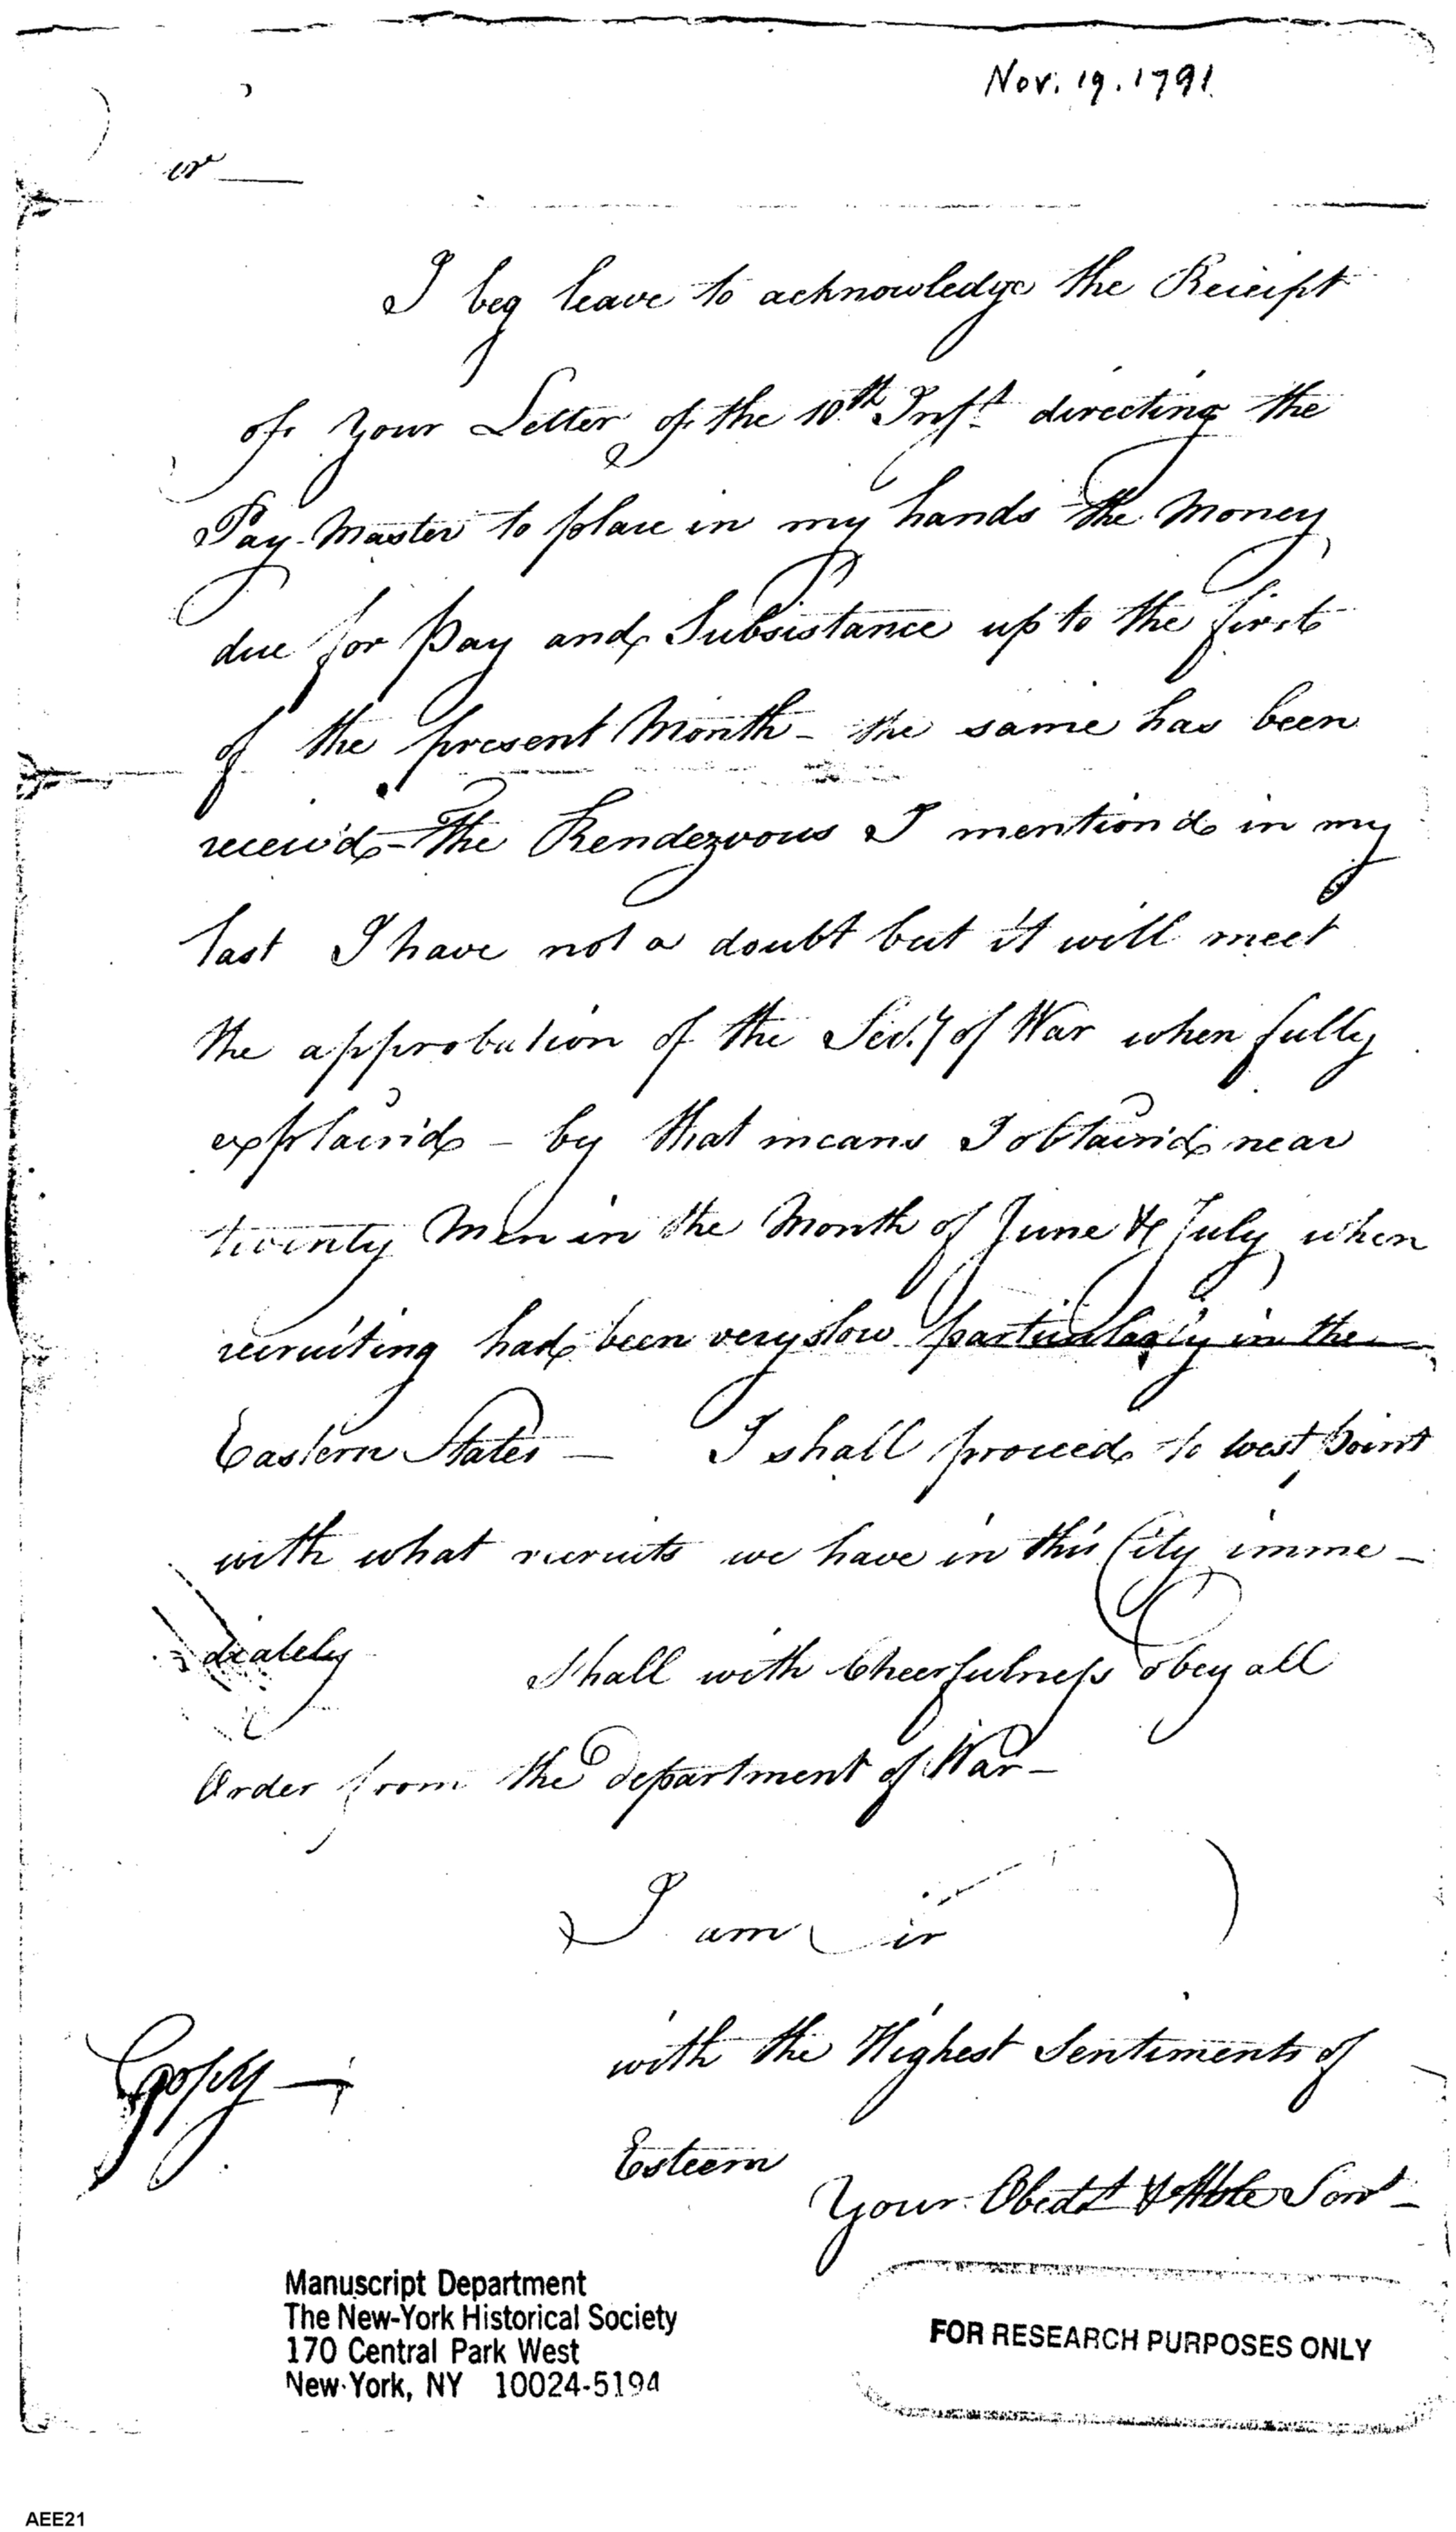 Nov. 19. 1791
I beg leave to acknowledge the Receipt
of Your Letter of the 10th Inst. directing the
Pay-Master to place in my hands the Money
due for Pay and Subsistance up to the first
of the present Month - the same has been
receiv'd - The Rendezvous I mention'd in my
last I have not a doubt but it will meet
the approbation of the Sec.y of War when fully
explain'd - by that means I obtain'd near
twenty Men in the Month of June & July, when
recruiting had been very slow particularly in the
Eastern States — I shall proceed to West Point
with what recruits we have in this City imme-
diately Shall with Cheerfulness obey all
Order from the department of War -
I am Sir
with the Highest Sentiments of
Copy —
Esteem
Your Obedt & Hble Servt -
Manuscript Department
The New-York Historical Society
170 Central Park West
New-York, NY 10024-5194
FOR RESEARCH PURPOSES ONLY
AEE21